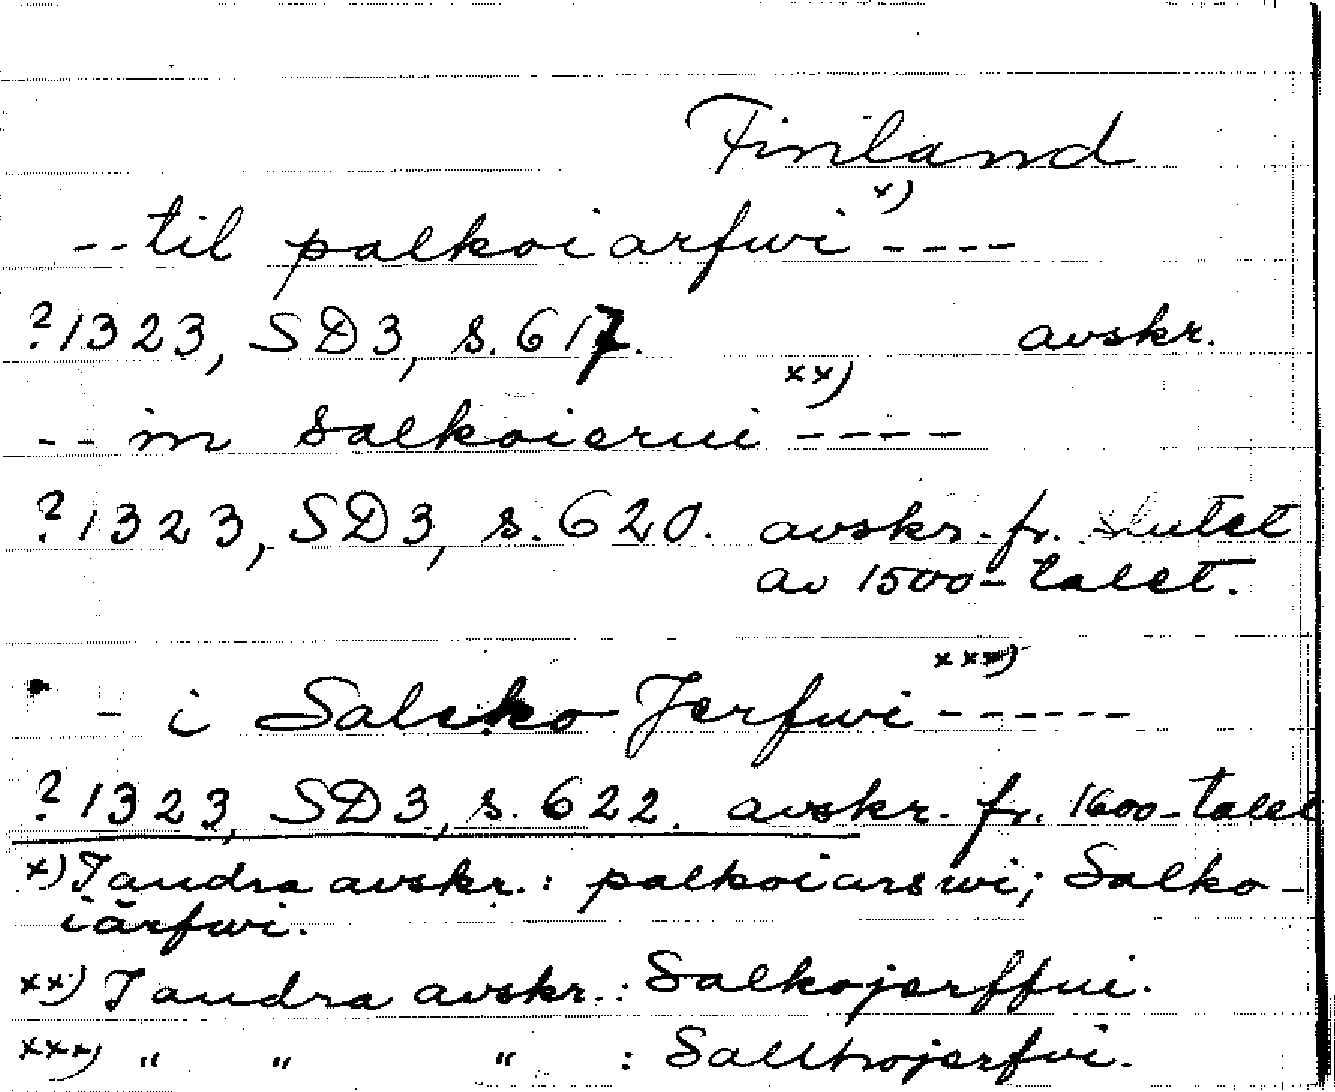 Finland
-- til palkoiarfwi x) ----
? 1323, SD3, s. 617. avskr.
-- in salkoierui xx) ----
? 1323, SD3, s. 620. avskr. fr. slutet
av 1500-talet.
- i Salcko Jerfwi xxx) ------
? 1323, SD3, s. 622. avskr. fr. 1600-talet
x) I andra avskr.: palkoiarswi; Salko-
iärfwi.
xx) I andra avskr.: Salkojerffui.
xxx) " " " : Salthojerfvi.